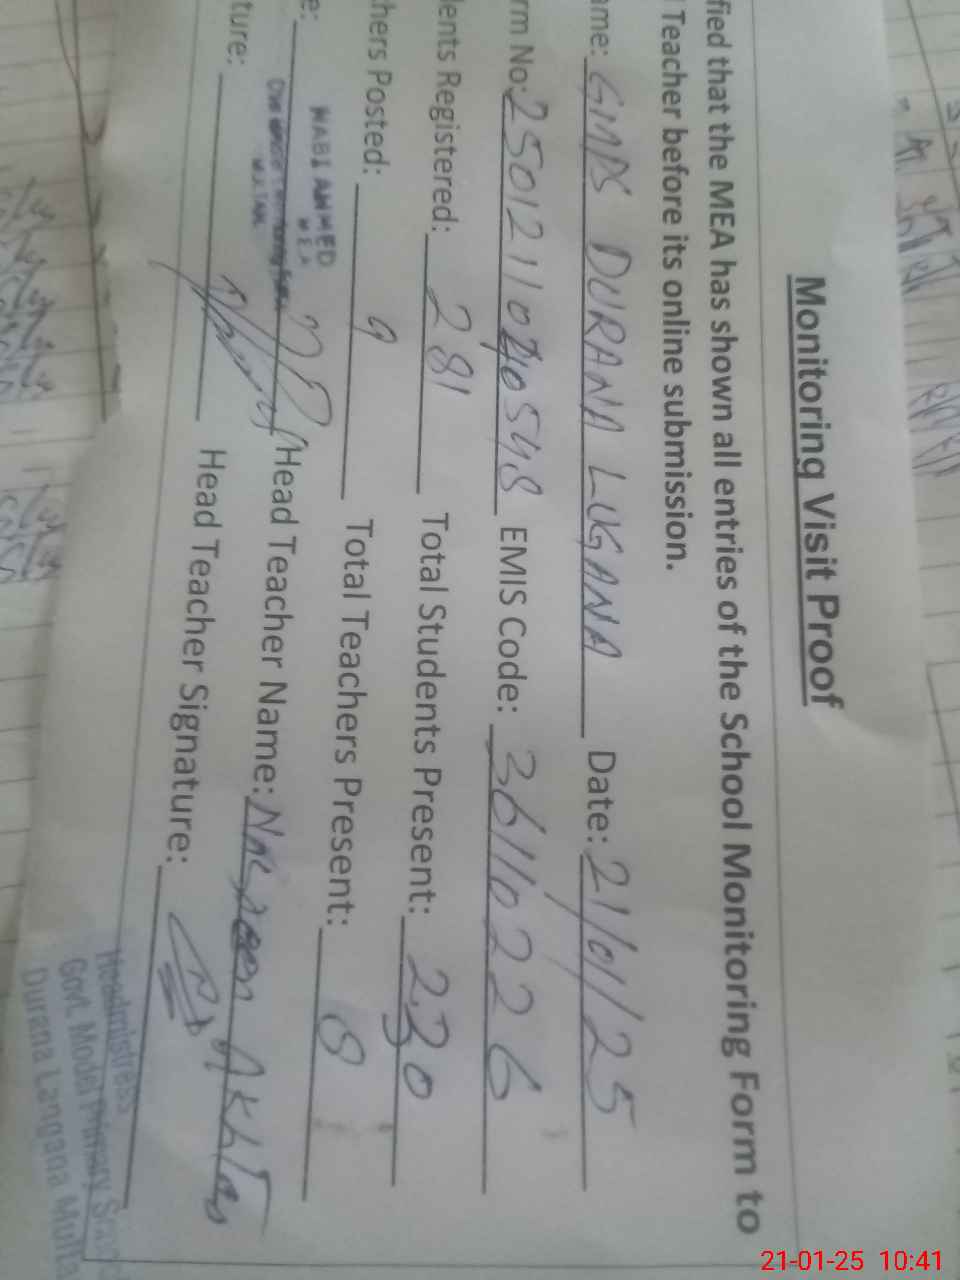 Monitoring Visit Proof
fied that the MEA has shown all entries of the School Monitoring Form to
Teacher before its online submission.
ame: GMPS DURANA LUGANA Date: 21/01/25
rm No: EMIS Code: 36110226
lents Registered: 281 Total Students Present: 230
hers Posted: 9 Total Teachers Present: 8
e: NABI AHMED MEA Head Teacher Name: Nasreen Akhtar
MULTAN
ture: Head Teacher Signature:
Headmistress
Govt. Model Primary
Durana Langana Multa
21-01-25 10:41